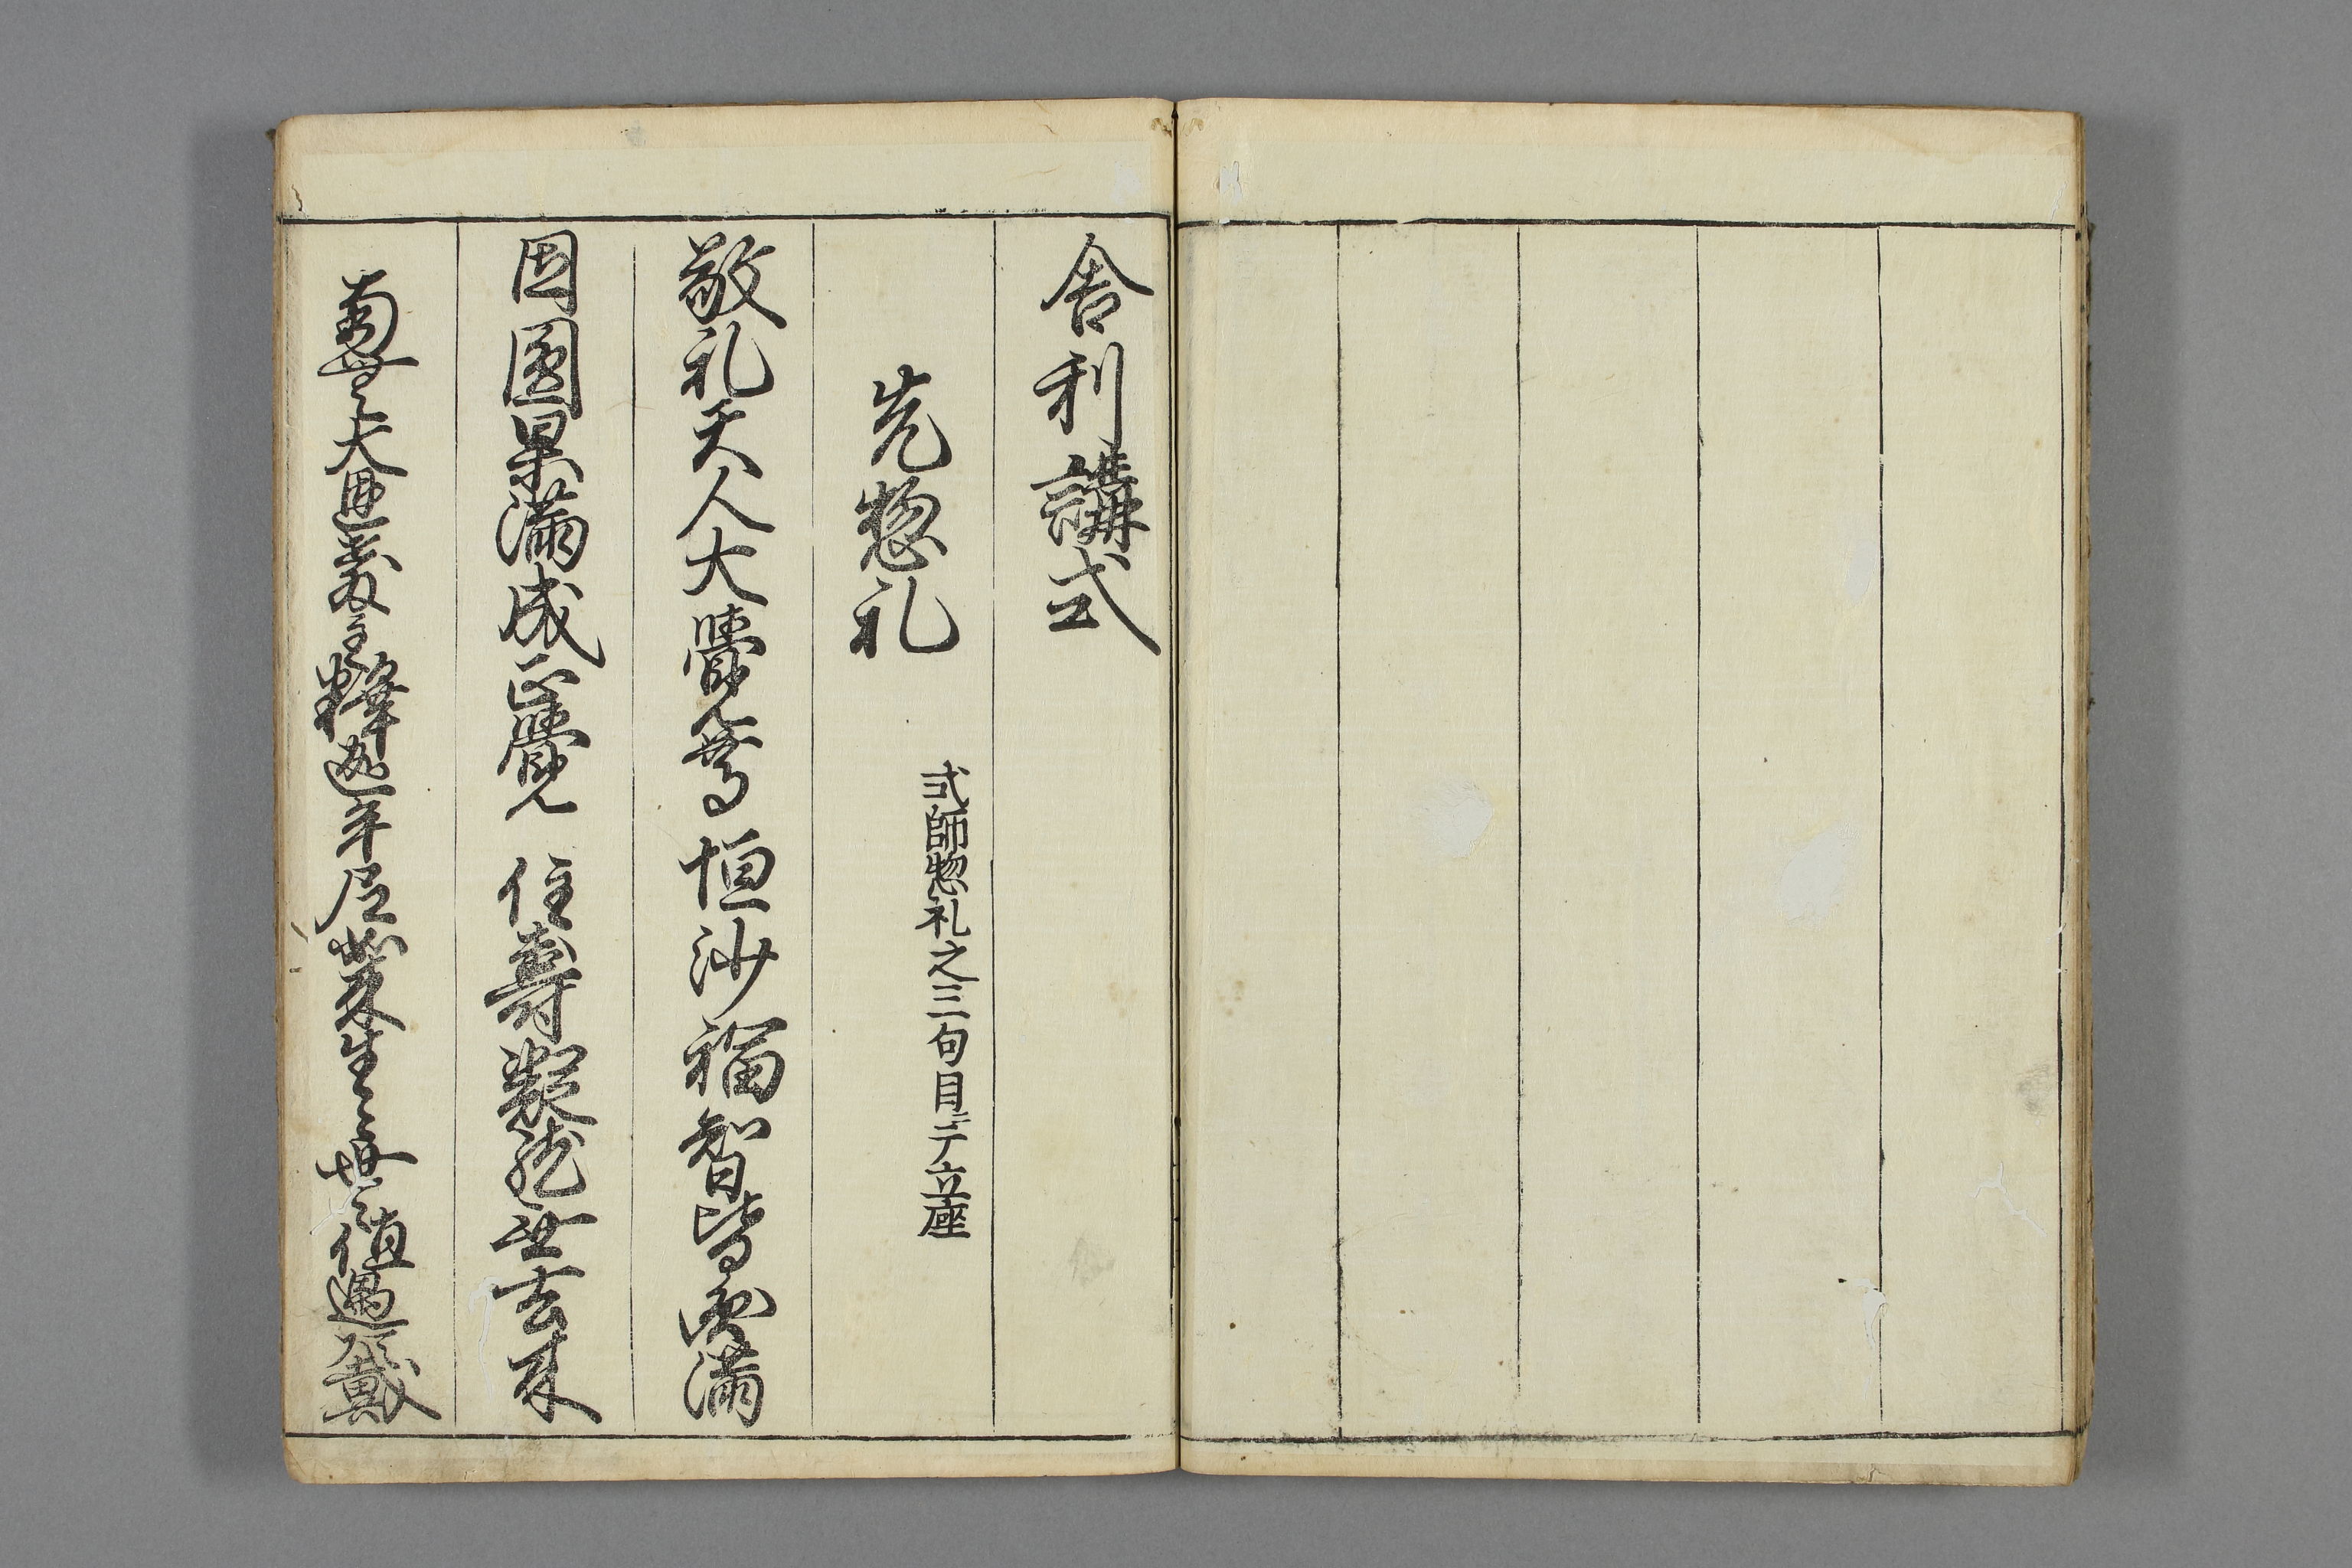 舎利講式
先惣礼
式師惣礼之三句目ニテ立座
敬礼天人大覺尊 恒沙福智皆圓満
因圓果満成正覺 住壽凝然無去来
南無大恩教主釋迦牟尼如来生々世々値遇頂戴